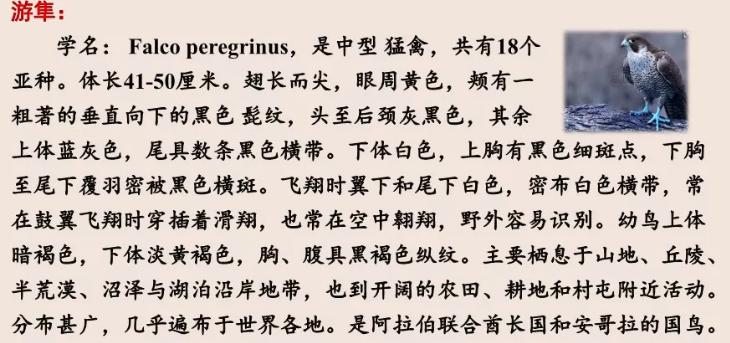 游隼：
学名： Falco peregrinus，是中型 猛禽，共有18个
亚种。体长41-50厘米。翅长而尖，眼周黄色，颊有一
粗著的垂直向下的黑色 髭纹，头至后颈灰黑色，其余
上体蓝灰色，尾具数条黑色横带。下体白色，上胸有黑色细斑点，下胸
至尾下覆羽密被黑色横斑。飞翔时翼下和尾下白色，密布白色横带，常
在鼓翼飞翔时穿插着滑翔，也常在空中翱翔，野外容易识别。幼鸟上体
暗褐色，下体淡黄褐色，胸、腹具黑褐色纵纹。主要栖息于山地、丘陵、
半荒漠、沼泽与湖泊沿岸地带，也到开阔的农田、耕地和村屯附近活动。
分布甚广，几乎遍布于世界各地。是阿拉伯联合酋长国和安哥拉的国鸟。